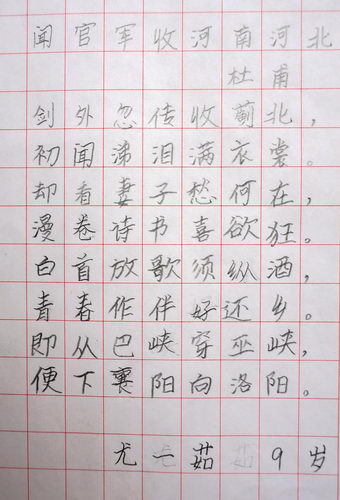 闻官军收河南河北
杜甫
剑外忽传收蓟北，
初闻涕泪满衣裳。
却看妻子愁何在，
漫卷诗书喜欲狂。
白首放歌须纵酒，
青春作伴好还乡。
即从巴峡穿巫峡，
便下襄阳向洛阳。
尤一茹 9岁